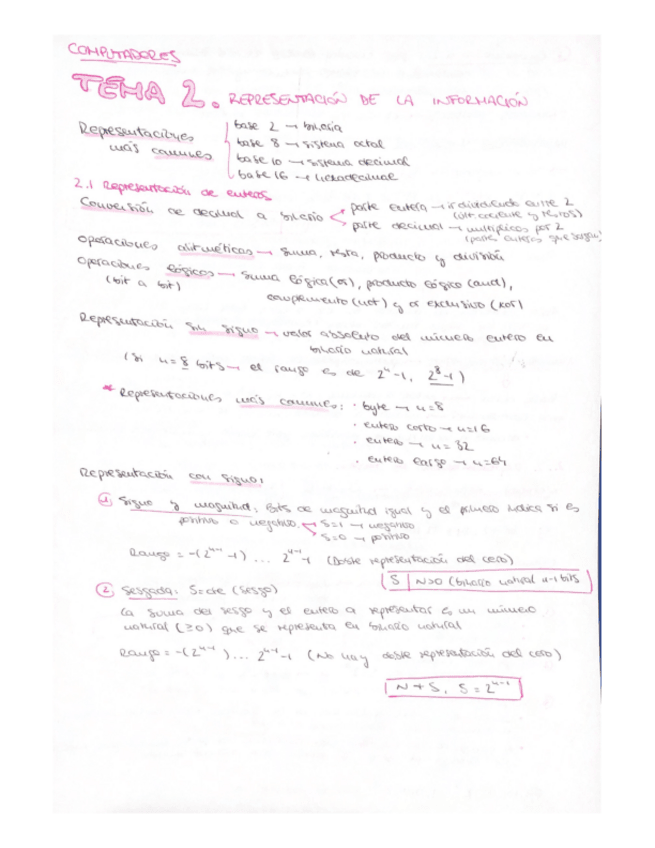 COMPUTADORES
TEMA 2. REPRESENTACIÓN DE LA INFORMACIÓN
Representaciones más comunes
base 2 → binaria
base 8 → sistema octal
base 10 → sistema decimal
base 16 → hexadecimal
2.1 Representación de enteros
Conversión de decimal a binario
parte entera → ir dividiendo entre 2
(últ. cociente y restos)
parte decimal → multiplicas por 2
(partes enteras que salgan)
Operaciones aritméticas → suma, resta, producto y división
Operaciones lógicas → suma lógica (or), producto lógico (and),
(bit a bit)
complemento (not) y or exclusivo (xor)
Representación sin signo → valor absoluto del número entero en
binario natural
(Si n=8 bits → el rango es de 2ⁿ-1, 2⁸-1)
* Representaciones más comunes: · byte → n=8
· entero corto → n=16
· entero → n=32
· entero largo → n=64
Representación con signo:
① Signo y magnitud: Bits de magnitud igual y el primero indica si es
positivo o negativo. S=1 → negativo
S=0 → positivo
Rango = -(2ⁿ⁻¹-1) ... 2ⁿ⁻¹-1 (Doble representación del cero)
S | N>0 (binario natural n-1 bits
② Sesgada: S=cte (sesgo)
La suma del sesgo y el entero a representar es un número
natural (≥0) que se representa en binario natural
Rango = -(2ⁿ⁻¹) ... 2ⁿ⁻¹-1 (No hay doble representación del cero)
N+S, S=2ⁿ⁻¹